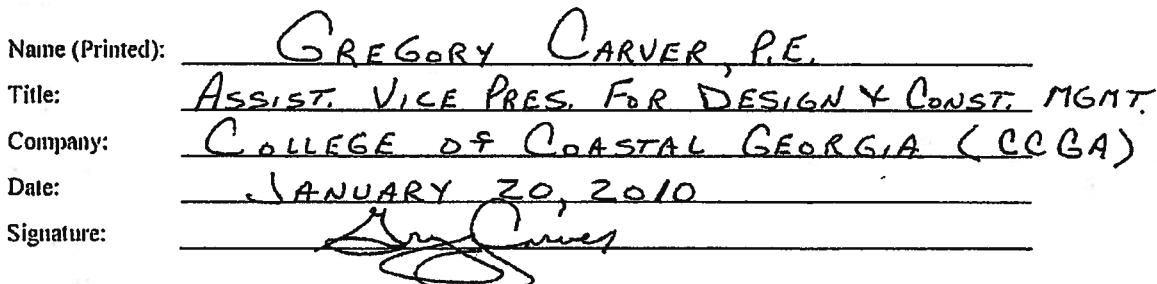 Name (Printed): GREGORY CARVER, P.E.
Title: ASSIST. VICE PRES. FOR DESIGN & CONST. MGMT.
Company: COLLEGE OF COASTAL GEORGIA (CCGA)
Date: JANUARY 20, 2010
Signature: Greg Carver